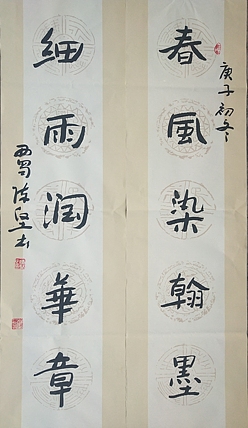 春風染翰墨
庚子初冬
細雨潤華章
西蜀陈
书